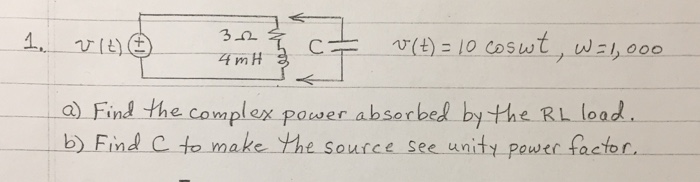 1. v(t) + - 3Ω 4mH C v(t) = 10 cos ωt, ω=1,000
a) Find the complex power absorbed by the RL load.
b) Find C to make the source see unity power factor.